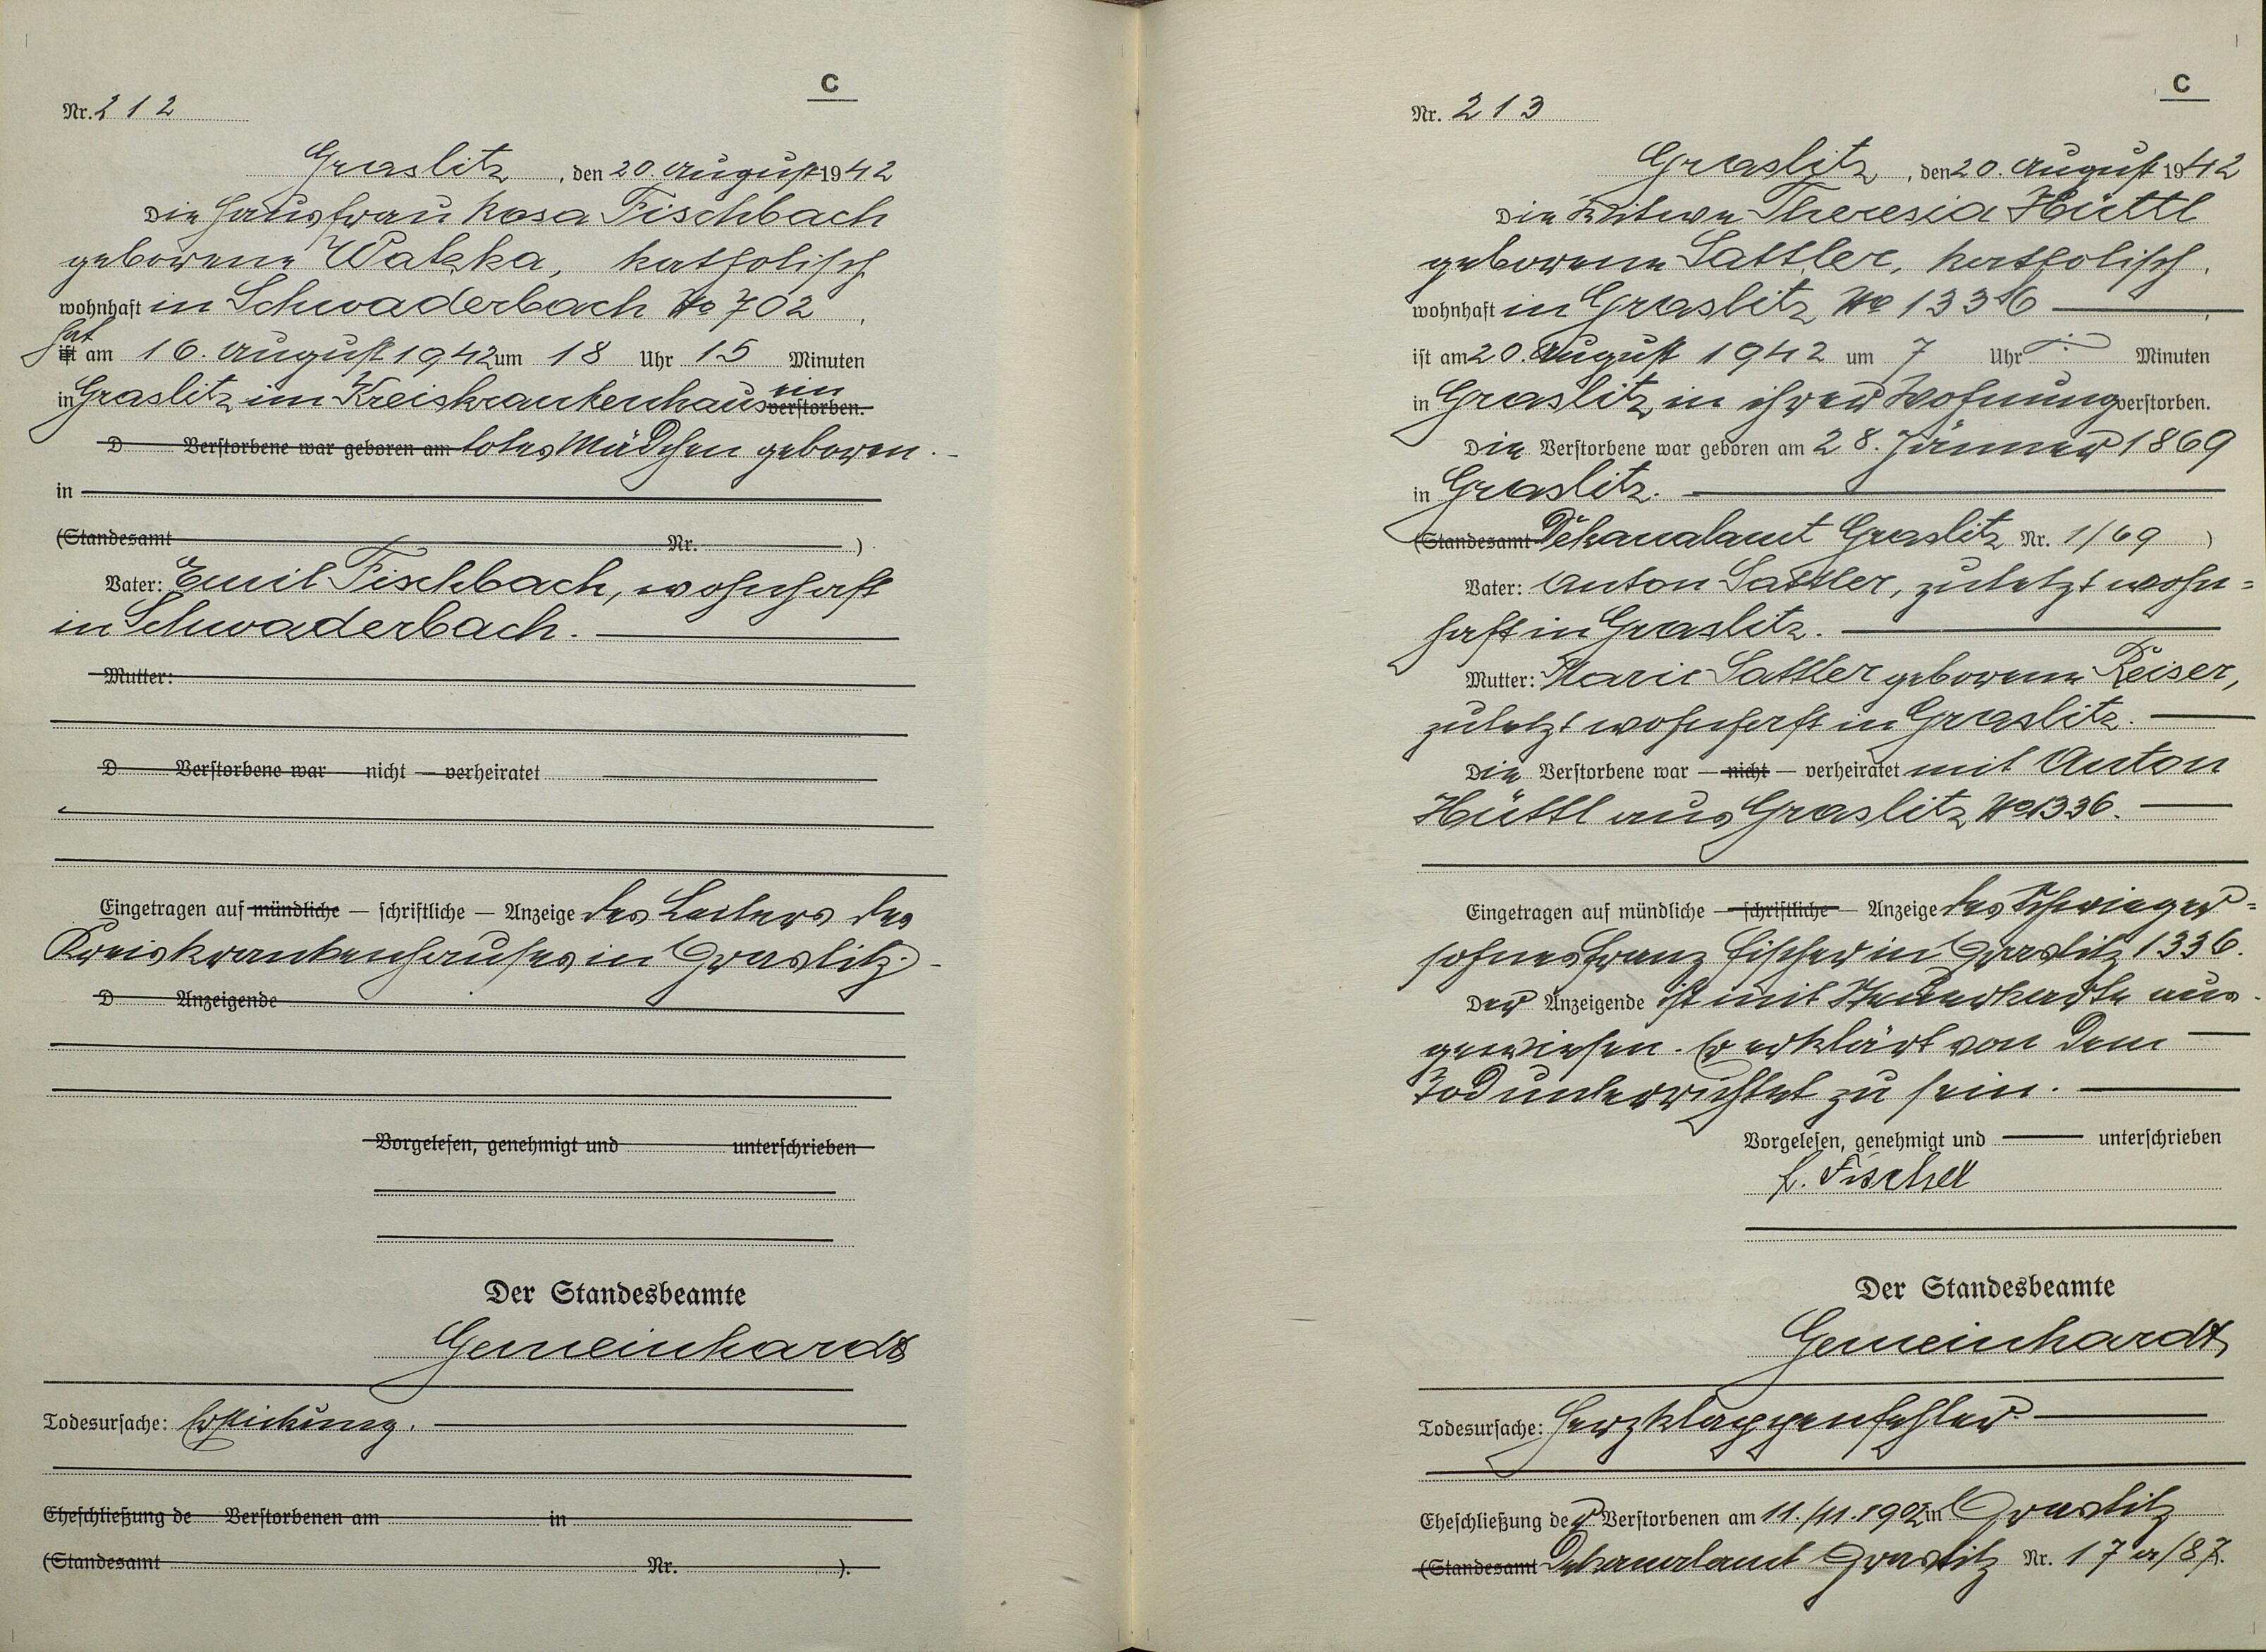 C
Nr. 212
Graslitz, den 20. August 1942
Die Hausfrau Rosa Fischbach
geborene Watzka, katholisch
wohnhaft in Schwaderbach No 702,
hat
ist am 16. August 1942 um 18 Uhr 15 Minuten
in Graslitz im Kreiskrankenhaus ein verstorben.
D Verstorbene war geboren am totes Mädchen geboren.
in
(Standesamt Nr. )
Vater: Emil Fischbach, wohnhaft
in Schwaderbach.
Mutter:
D Verstorbene war — nicht — verheiratet
Eingetragen auf mündliche — schriftliche — Anzeige des Leiters des
Kreiskrankenhauses in Graslitz.
D Anzeigende
Vorgelesen, genehmigt und unterschrieben
Der Standesbeamte
Gemeinhardt
Todesursache: Erstickung.
Eheschließung de Verstorbenen am in
(Standesamt Nr. ).
C
Nr. 213
Graslitz, den 20. August 1942
Die Witwe Theresia Hüttl
geborene Sattler, katholisch,
wohnhaft in Graslitz No 1336,
ist am 20. August 1942 um 7 Uhr Minuten
in Graslitz in ihrer Wohnung verstorben.
Die Verstorbene war geboren am 28. Jänner 1869
in Graslitz.
(Standesamt Dekanalamt Graslitz Nr. 1/69 )
Vater: Anton Sattler, zuletzt wohn=
haft in Graslitz.
Mutter: Marie Sattler geborene Reiser,
zuletzt wohnhaft in Graslitz.
Die Verstorbene war — nicht — verheiratet mit Anton
Hüttl aus Graslitz No 1336.
Eingetragen auf mündliche — schriftliche — Anzeige des Schwieger=
sohnes Franz Fischer in Graslitz 1336.
Der Anzeigende ist mit aus-
gewiesen. Er erklärt von dem
Tod unterrichtet zu sein.
Vorgelesen, genehmigt und unterschrieben
F. Fischer
Der Standesbeamte
Gemeinhardt
Todesursache: Herzklappenfehler
Eheschließung der Verstorbenen am 11./11.1902 in Graslitz
(Standesamt Dekanalamt Graslitz Nr. 17 ).